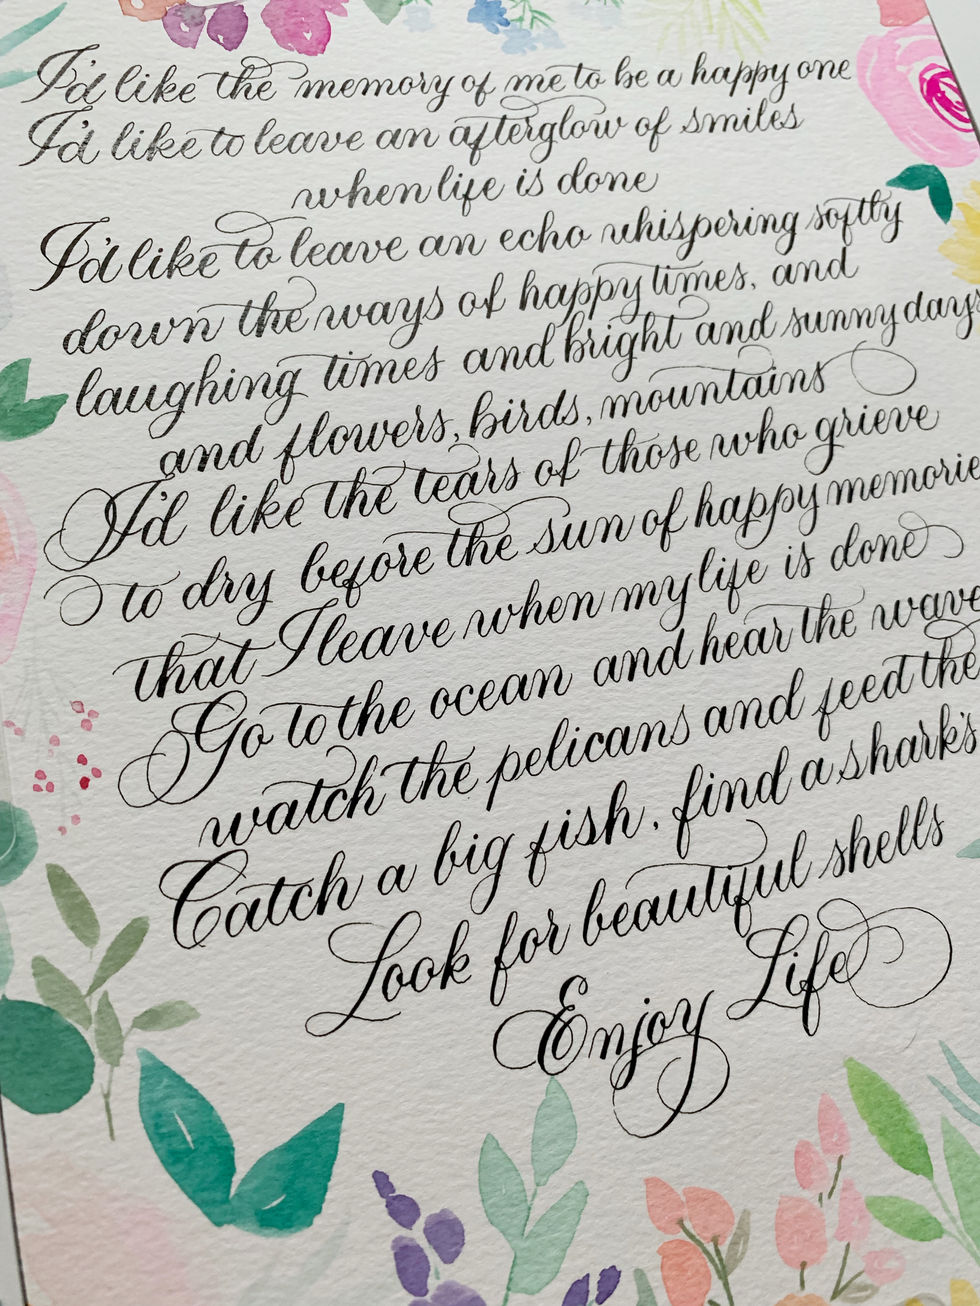 I'd like the memory of me to be a happy one
I'd like to leave an afterglow of smiles
when life is done
I'd like to leave an echo whispering softly
down the ways of happy times, and
laughing times and bright and sunny days
and flowers, birds, mountains
I'd like the tears of those who grieve
to dry before the sun of happy memorie
that I leave when my life is done
Go to the ocean and hear the wave
watch the pelicans and feed the
Catch a big fish, find a shark's
Look for beautiful shells
Enjoy Life